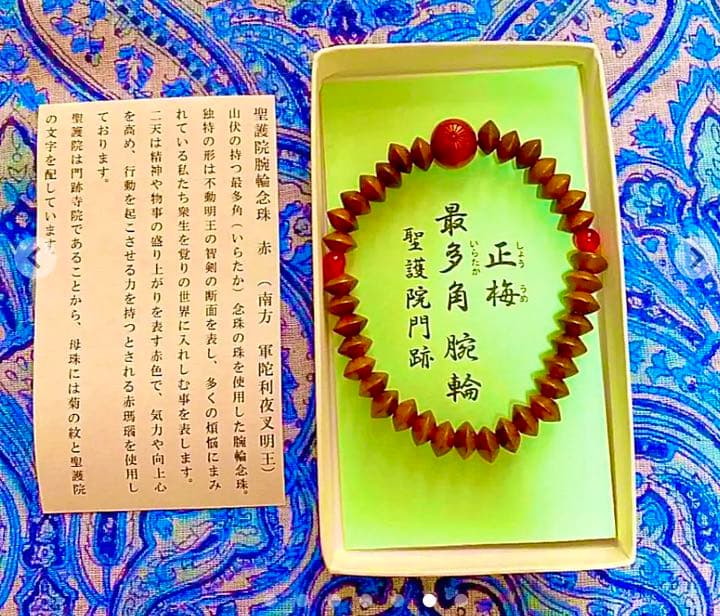 聖護院腕輪念珠　赤　（南方　軍陀利夜叉明王）
山伏の持つ最多角（いらたか）念珠の珠を使用した腕輪念珠。
独特の形は不動明王の智剣の断面を表し、多くの煩悩にまみ
れている私たち衆生を覚りの世界に入れしむ事を表します。
二天は精神や物事の盛り上がりを表す赤色で、気力や向上心
を高め、行動を起こさせる力を持つとされる赤瑪瑙を使用し
ております。
聖護院は門跡寺院であることから、母珠には菊の紋と聖護院
の文字を配しています。
正梅
しょううめ
最多角腕輪
いらたか
聖護院門跡